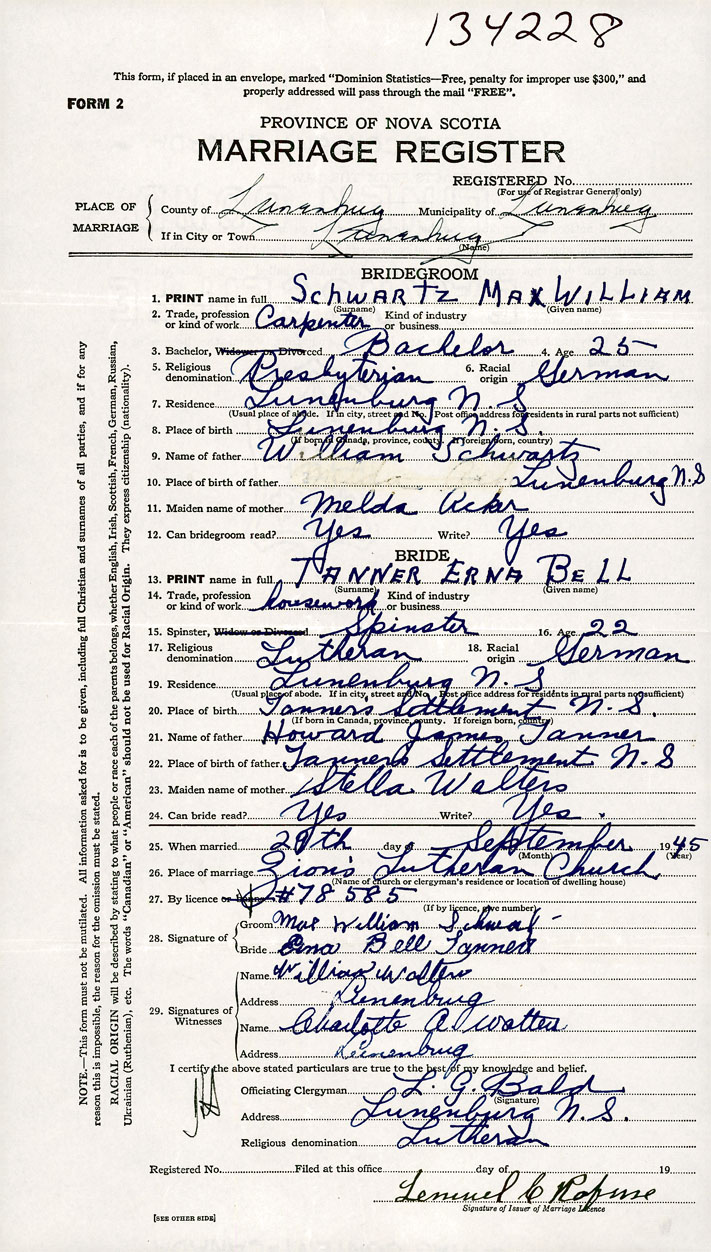 134228
This form, if placed in an envelope, marked “Dominion Statistics—Free, penalty for improper use $300,” and
properly addressed will pass through the mail “FREE”.
FORM 2
PROVINCE OF NOVA SCOTIA
MARRIAGE REGISTER
REGISTERED No.
(For use of Registrar General only)
PLACE OF MARRIAGE
County of Lunenburg Municipality of Lunenburg
If in City or Town Lunenburg
(Name)
BRIDEGROOM
1. PRINT name in full SCHWARTZ MAX WILLIAM
(Surname) (Given name)
2. Trade, profession or kind of work Carpenter Kind of industry or business
3. Bachelor, Widower or Divorced Bachelor 4. Age 25
5. Religious denomination Presbyterian 6. Racial origin German
7. Residence Lunenburg N.S
(Usual place of abode. If in city, street and No. Post office address for residents in rural parts not sufficient)
8. Place of birth Lunenburg N.S.
(If born in Canada, province, county. If foreign born, country)
9. Name of father William Schwartz
10. Place of birth of father Lunenburg N.S
11. Maiden name of mother Melda Acker
12. Can bridegroom read? Yes Write? Yes
BRIDE
13. PRINT name in full TANNER ERNA BELL
(Surname) (Given name)
14. Trade, profession or kind of work housework Kind of industry or business
15. Spinster, Widow or Divorced Spinster 16. Age 22
17. Religious denomination Lutheran 18. Racial origin German
19. Residence Lunenburg N.S
(Usual place of abode. If in city, street and No. Post office address for residents in rural parts not sufficient)
20. Place of birth Tanners Settlement N.S.
(If born in Canada, province, county. If foreign born, country)
21. Name of father Howard James Tanner
22. Place of birth of father Tanners Settlement N.S
23. Maiden name of mother Stella Walters
24. Can bride read? Yes Write? Yes
25. When married 29th day of September 1945
(Month) (Year)
26. Place of marriage Zion's Lutheran Church
(Name of church or clergyman's residence or location of dwelling house)
27. By licence or #78585
(If by licence, give number)
28. Signature of
Groom Max William Schwartz
Bride Erna Bell Tanner
29. Signatures of Witnesses
Name William Walters
Address Lunenburg
Name Charlotte A. Walters
Address Lunenburg
I certify the above stated particulars are true to the best of my knowledge and belief.
Officiating Clergyman L. G. Bald
(Signature)
Address Lunenburg N.S.
Religious denomination Lutheran
Registered No. Filed at this office day of 19
Lemuel C Rafuse
Signature of Issuer of Marriage Licence
[SEE OTHER SIDE]
NOTE.—This form must not be mutilated. All information asked for is to be given, including full Christian and surnames of all parties, and if for any
reason this is impossible, the reason for the omission must be stated.
RACIAL ORIGIN will be described by stating to what people or race each of the parents belongs, whether English, Irish, Scottish, French, German, Russian,
Ukrainian (Ruthenian), etc. The words “Canadian” or “American” should not be used for Racial Origin. They express citizenship (nationality).